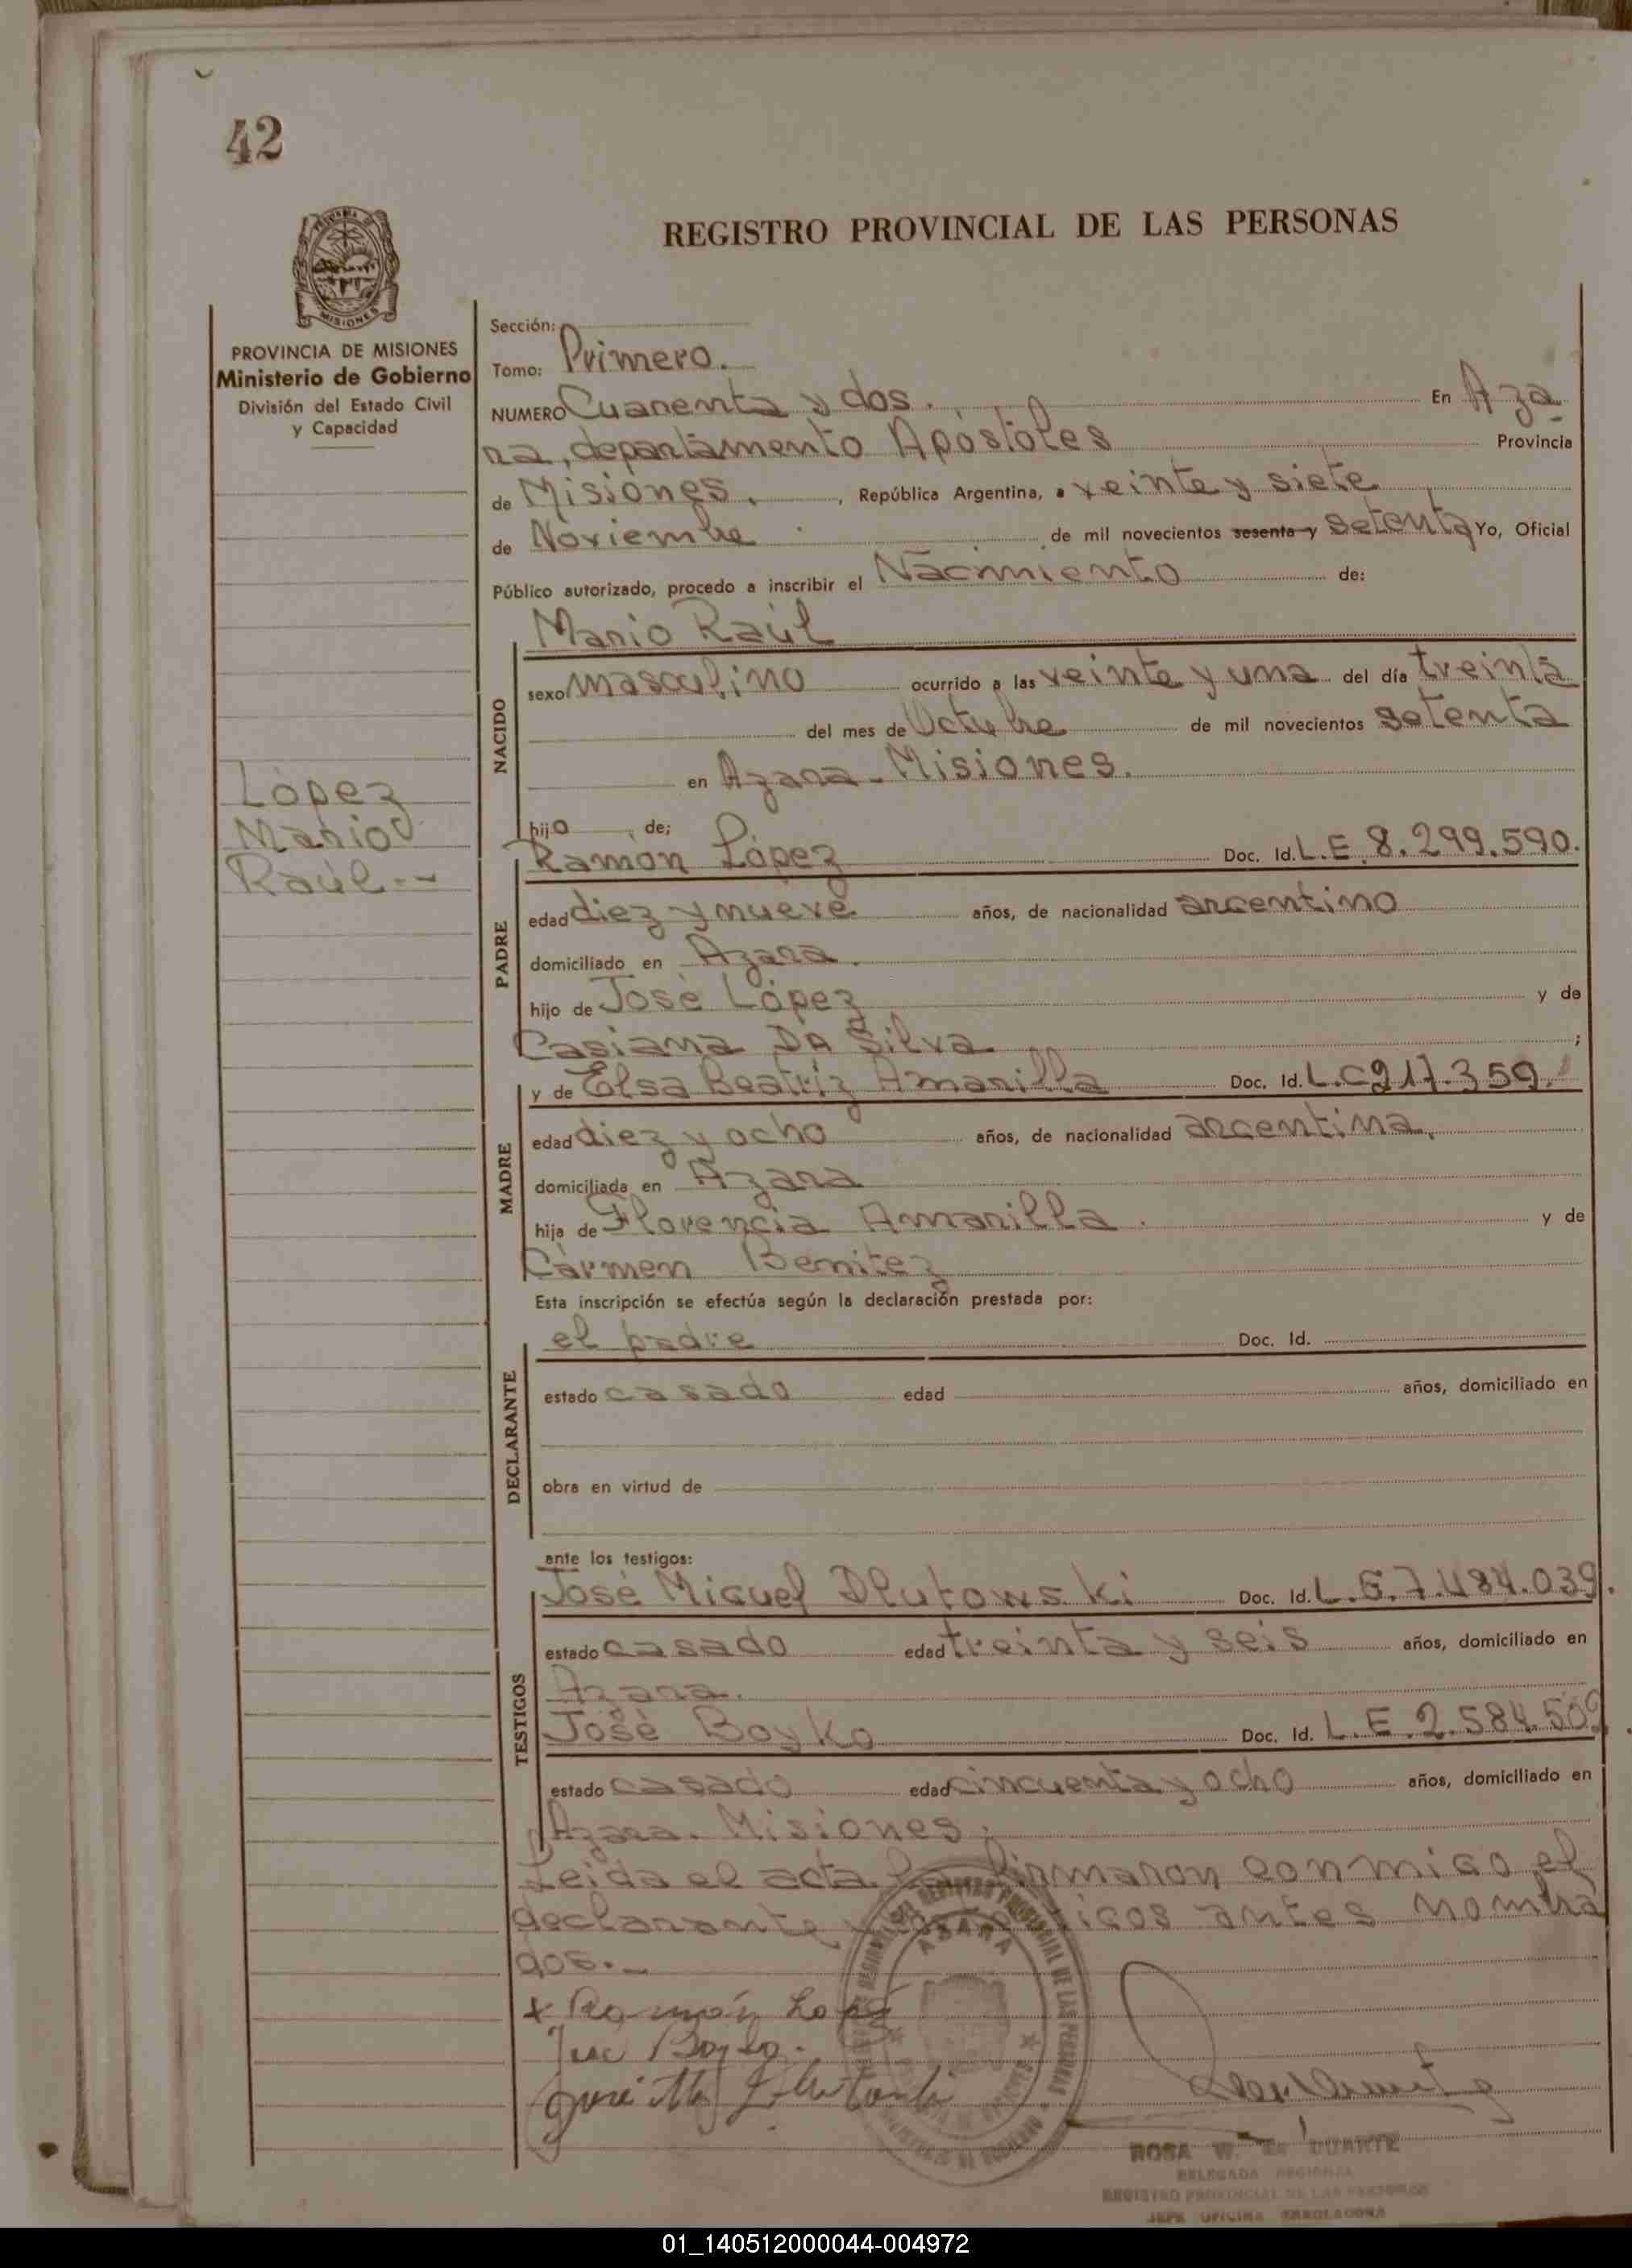 42
REGISTRO PROVINCIAL DE LAS PERSONAS
MISIONES
PROVINCIA DE MISIONES
Ministerio de Gobierno
División del Estado Civil
y Capacidad
López
Mario
Raúl.--
Sección:
Tomo: Primero.
NUMERO Cuarenta y dos. En Aza
ra, departamento Apóstoles Provincia
de Misiones, República Argentina, a veinte y siete
de Noviembre de mil novecientos sesenta y setenta Yo, Oficial
Público autorizado, procedo a inscribir el Nacimiento de:
Mario Raúl
NACIDO
sexo masculino ocurrido a las veinte y una del día treinta
del mes de Octubre de mil novecientos setenta
en Azara - Misiones.
hijo, de;
Ramón López Doc. Id. L.E. 8.299.590.
PADRE
edad diez y nueve años, de nacionalidad argentino
domiciliado en Azara.
hijo de José López y de
Casiana Da Silva ;
y de Elsa Beatriz Amarilla Doc. Id. L.C 217.359.
MADRE
edad diez y ocho años, de nacionalidad argentina,
domiciliada en Azara
hija de Florencia Amarilla. y de
Cármen Benitez
Esta inscripción se efectúa según la declaración prestada por:
el padre Doc. Id.
DECLARANTE
estado casado edad años, domiciliado en
obra en virtud de
ante los testigos:
José Miguel Dlutowski Doc. Id. L.E. 7.484.039.
TESTIGOS
estado casado edad treinta y seis años, domiciliado en
Azara.
José Boyko Doc. Id. L.E. 2.584.509.
estado casado edad cincuenta y ocho años, domiciliado en
Azara. Misiones;
Leida el acta la firmaron conmigo el
declarante y los testigos antes nombra
dos.-
AZARA
x Ramón López
José Boyko.
ROSA W. DUARTE
DELEGADA REGIONAL
REGISTRO PROVINCIAL DE LAS PERSONAS
JEFE OFICINA ENROLADORA
01_140512000044-004972